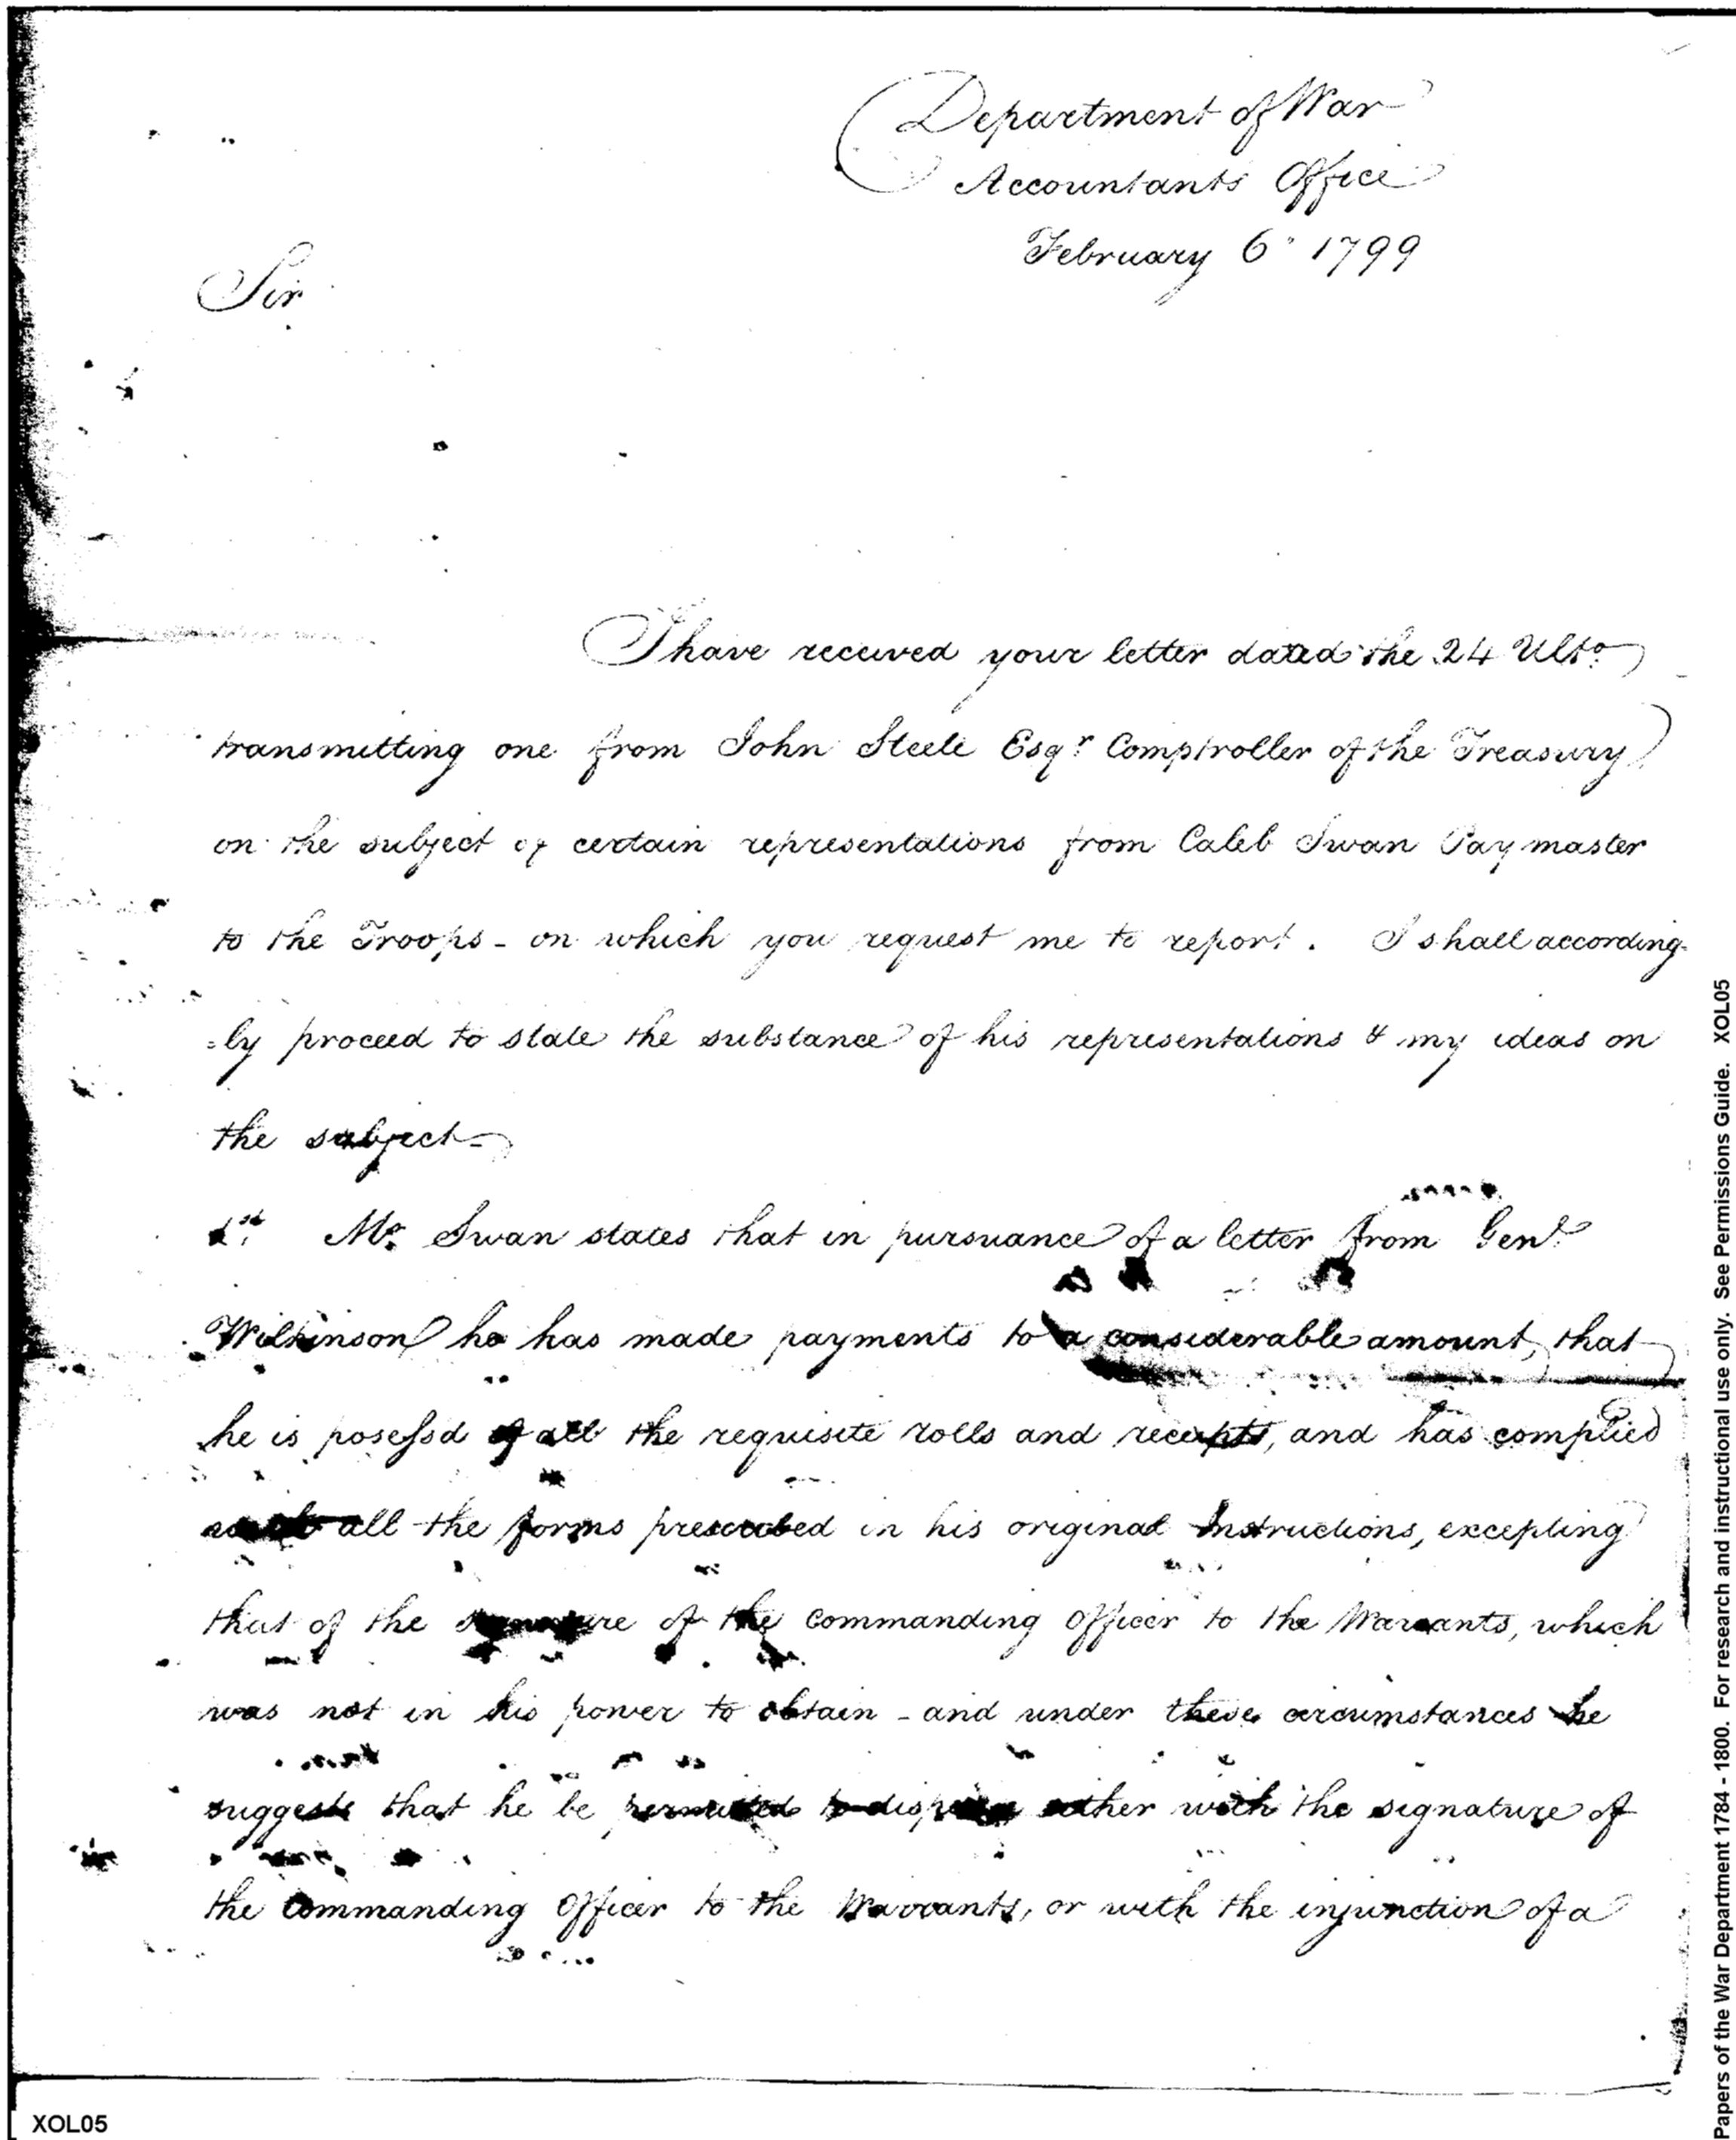 Department of War
Accountants Office
February 6 1799
Sir
I have received your letter dated the 24 Ulto
transmitting one from John Steele Esqr Comptroller of the Treasury
on the subject of certain representations from Caleb Swan Paymaster
to the Troops - on which you request me to report. I shall according-
=ly proceed to state the substance of his representations & my ideas on
the subject -
1st Mr. Swan states that in pursuance of a letter from Genl
Wilkinson he has made payments to a considerable amount, that
he is posessd of all the requisite rolls and receipts, and has complied
with all the forms prescribed in his original Instructions, excepting
that of the signature of the commanding Officer to the Warrants, which
was not in his power to obtain - and under these circumstances he
suggests that he be permitted to dispense either with the signature of
the Commanding Officer to the Warrants, or with the injunction of a
XOL05
Papers of the War Department 1784 - 1800. For research and instructional use only. See Permissions Guide. XOL05